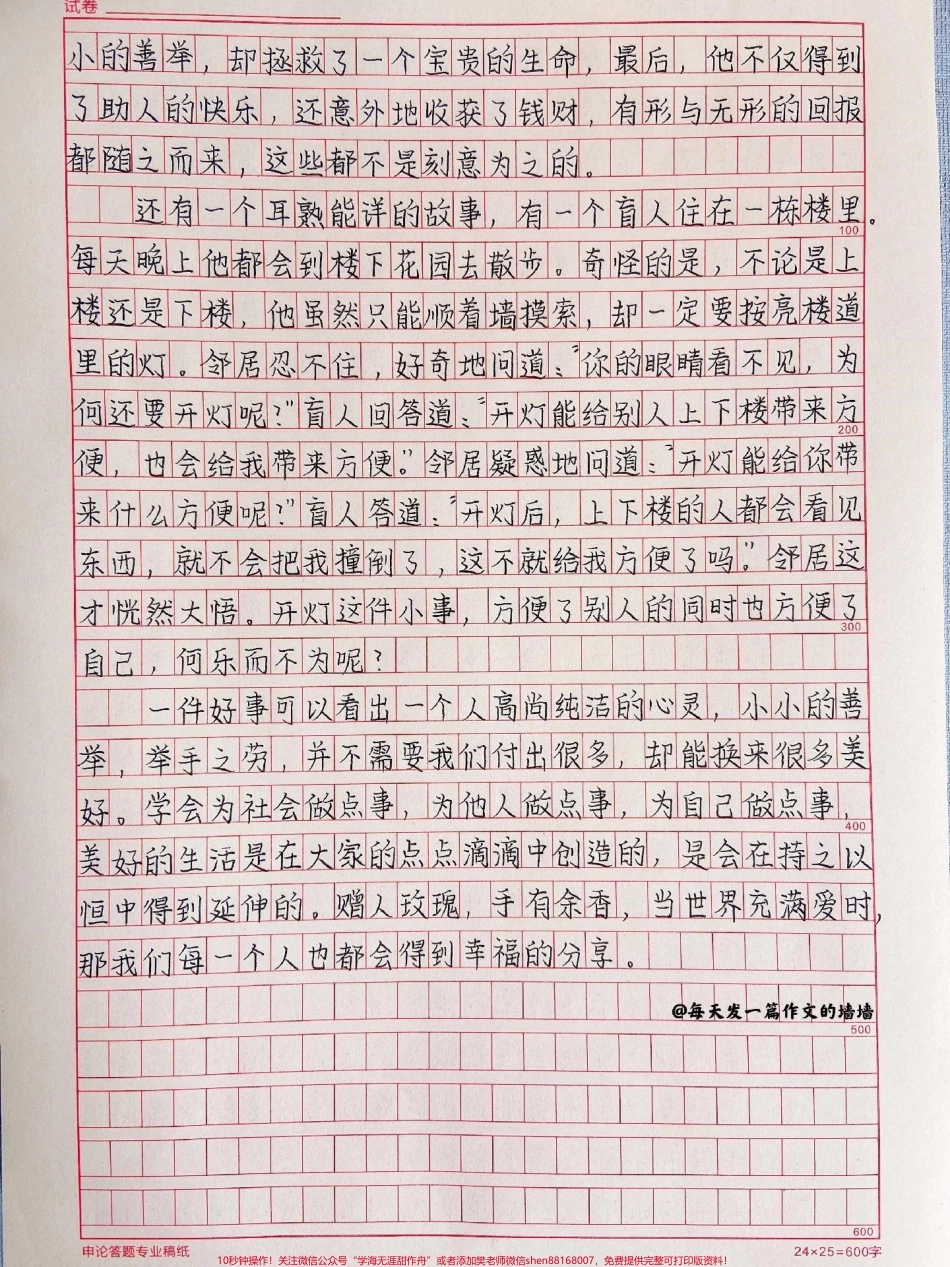 试卷
小的善举，却拯救了一个宝贵的生命，最后，他不仅得到
了助人的快乐，还意外地收获了钱财，有形与无形的回报
都随之而来，这些都不是刻意为之的。
还有一个耳熟能详的故事，有一个盲人住在一栋楼里。
100
每天晚上他都会到楼下花园去散步。奇怪的是，不论是上
楼还是下楼，他虽然只能顺着墙摸索，却一定要按亮楼道
里的灯。邻居忍不住，好奇地问道：“你的眼睛看不见，为
何还要开灯呢？”盲人回答道：“开灯能给别人上下楼带来方
200
便，也会给我带来方便。”邻居疑惑地问道：“开灯能给你带
来什么方便呢？”盲人答道：“开灯后，上下楼的人都会看见
东西，就不会把我撞倒了，这不就给我方便了吗。”邻居这
才恍然大悟。开灯这件小事，方便了别人的同时也方便了
300
自己，何乐而不为呢？
一件好事可以看出一个人高尚纯洁的心灵，小小的善
举，举手之劳，并不需要我们付出很多，却能换来很多美
好。学会为社会做点事，为他人做点事，为自己做点事，
400
美好的生活是在大家的点点滴滴中创造的，是会在持之以
恒中得到延伸的。赠人玫瑰，手有余香，当世界充满爱时，
那我们每一个人也都会得到幸福的分享。
@每天发一篇作文的墙墙
500
600
申论答题专业稿纸
24×25=600字
10秒钟操作！关注微信公众号“学海无涯甜作舟”或者添加樊老师微信shen88168007，免费提供完整可打印版资料！